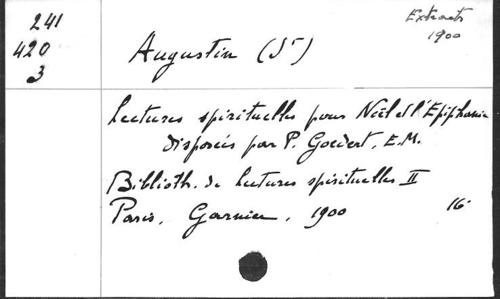 241
420
3
Extraits
1900
Augustin (St)
Lectures spirituelles pour Noël et l'Epiphanie
disposées par P. Goedert, E.M.
Biblioth. de Lectures spirituelles II
Paris, Garnier, 1900 16°